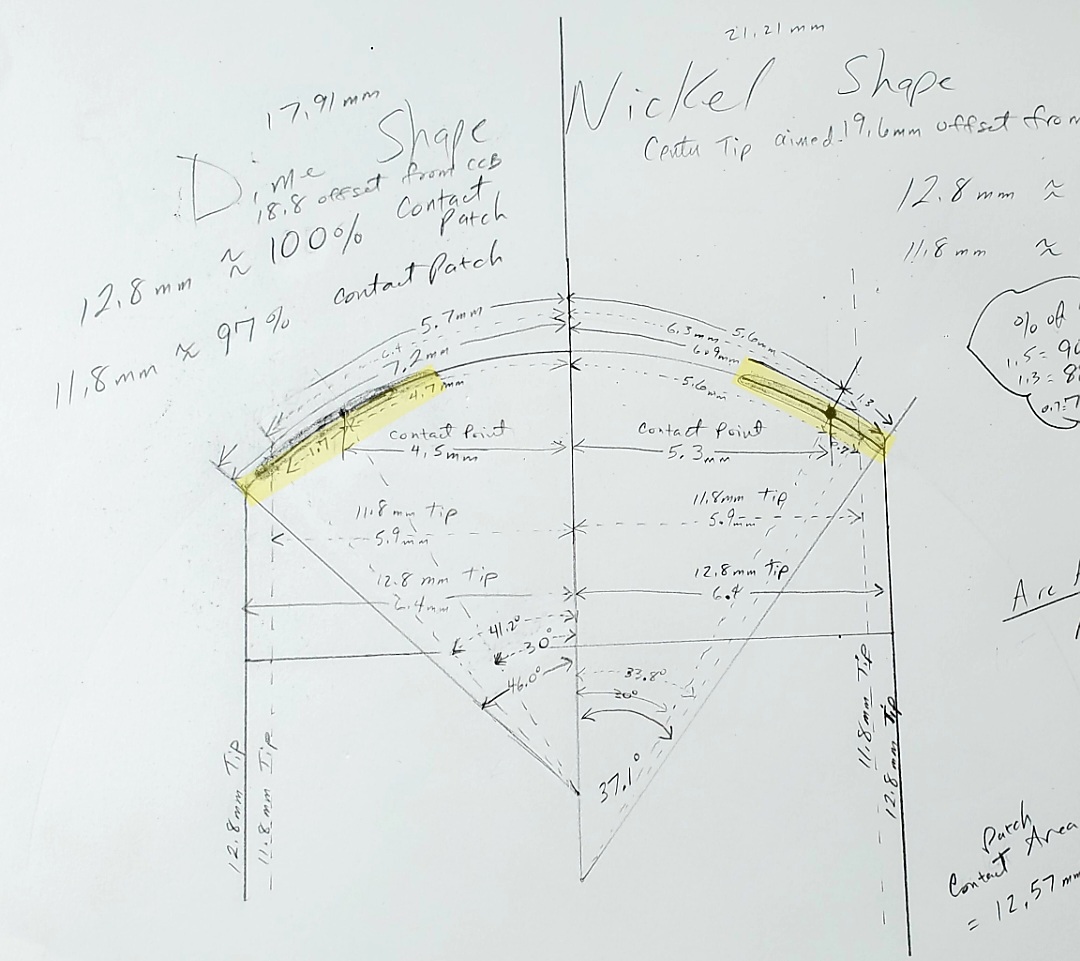 21.21 mm
Nickel Shape
Center Tip aimed 19.6mm offset from
12.8 mm ≈
11.8 mm ≈
17.91 mm
Dime Shape
18.8 offset from CCB
12.8 mm ≈ 100% Contact Patch
11.8mm ≈ 97% contact Patch
% of
1.5 = 90
1.3 = 8
0.7 = 7
5.7mm
6.4
7.2mm
4.7mm
1.7
5.6mm
6.3mm
6.09mm
5.6mm
1.3
0.7
contact Point
4.5mm
contact Point
5.3mm
11.8mm Tip
5.9mm
11.8mm Tip
5.9mm
12.8 mm Tip
6.4mm
12.8mm Tip
6.4
41.2°
30°
46.0°
33.8°
37.1°
12.8mm Tip
11.8mm Tip
11.8mm Tip
12.8mm Tip
Arc
Patch
Contact Area
= 12.57 mm